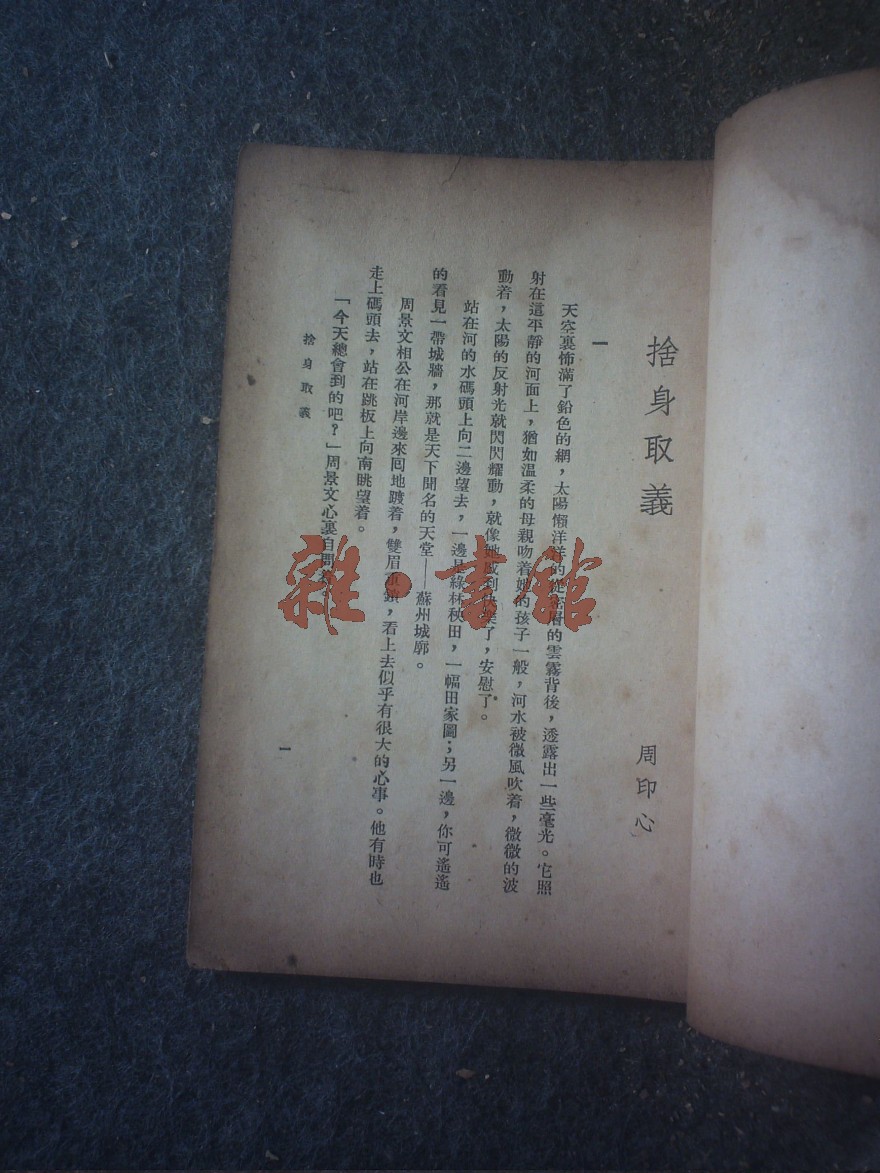 捨身取義
周印心
一
天空裏怖滿了鉛色的網，太陽懶洋洋的從密層的雲霧背後，透露出一些毫光。它照
射在這平靜的河面上，猶如溫柔的母親吻着她的孩子一般，河水被微風吹着，微微的波
動着，太陽的反射光就閃閃耀動，就像她感到快樂了，安慰了。
站在河的水碼頭上向二邊望去，一邊是綠林秧田，一幅田家圖；另一邊，你可遙遙
的看見一帶城牆，那就是天下聞名的天堂——蘇州城廓。
周景文相公在河岸邊來囘地踱着，雙眉重鎖，看上去似乎有很大的心事。他有時也
走上碼頭去，站在跳板上向南眺望着。
「今天總會到的吧？」周景文心裏自問着。
捨身取義
一
雜·書館